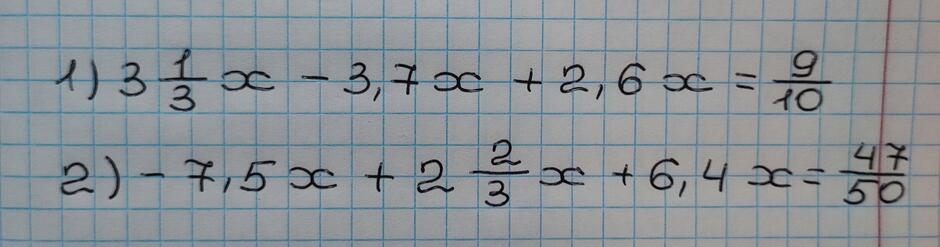 1) 3 1/3 x - 3,7x + 2,6x = 9/10
2) - 7,5x + 2 2/3 x + 6,4x = 47/50